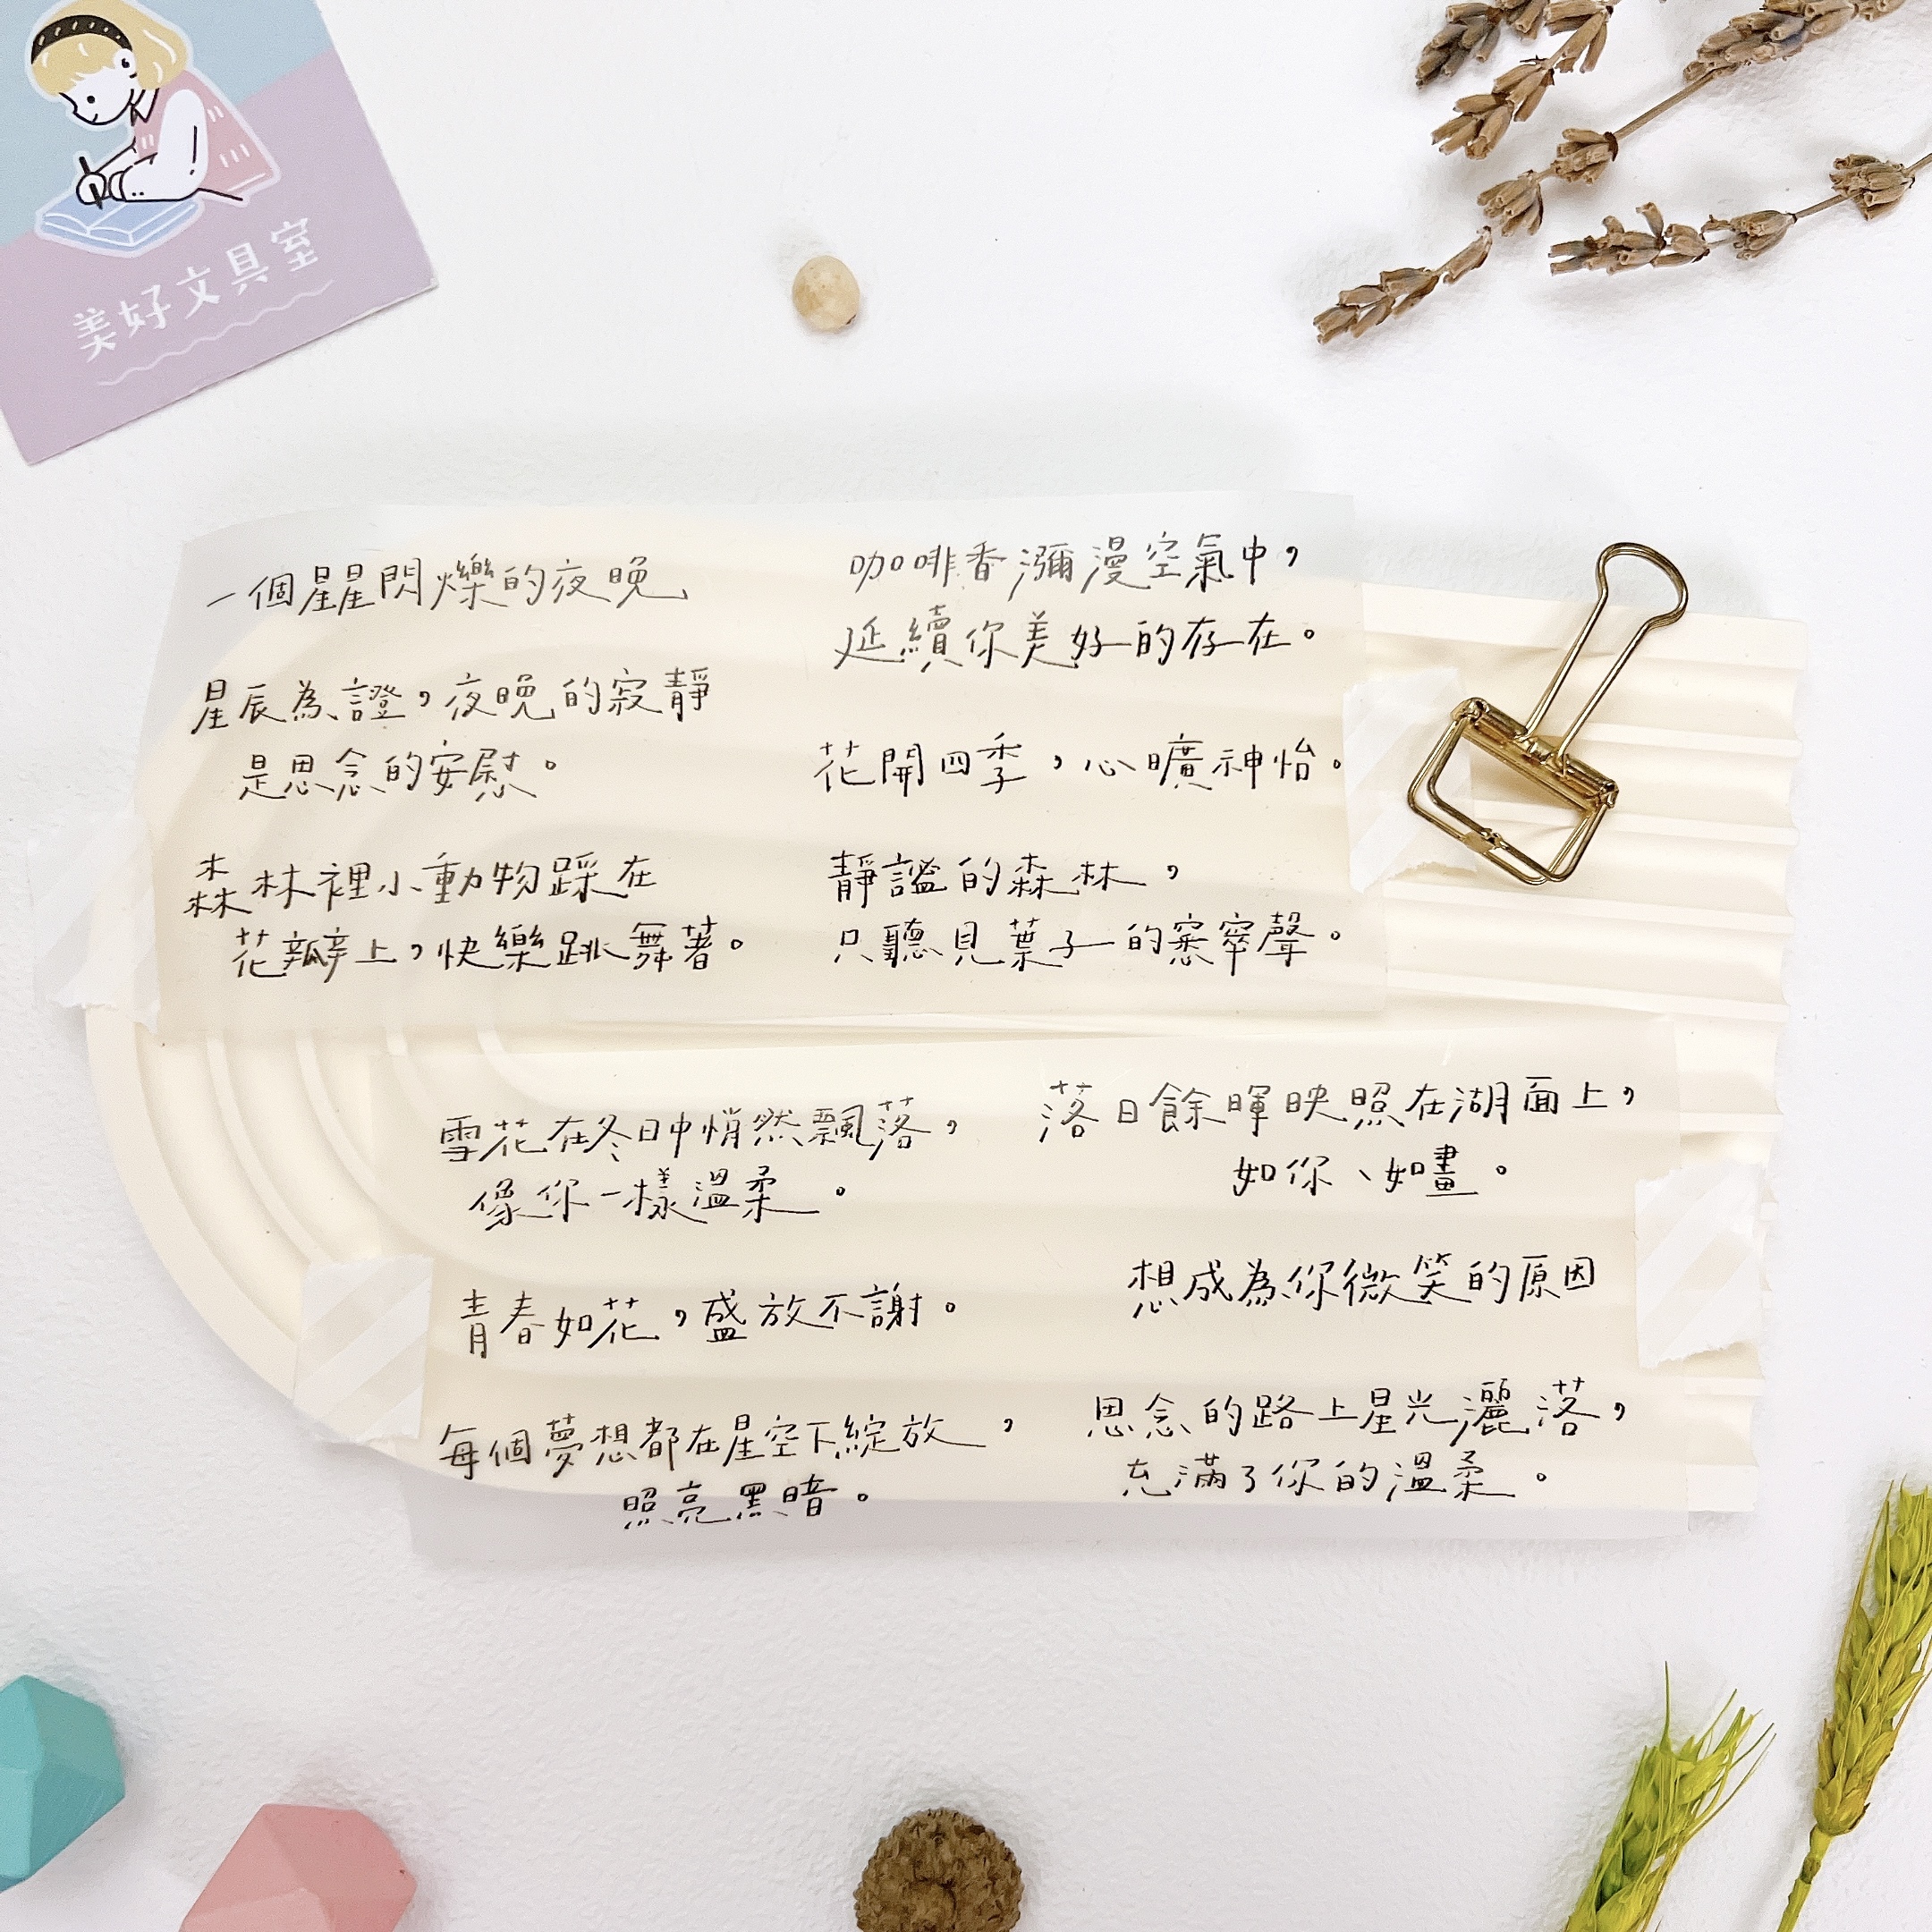 美好文具室
一個星星閃爍的夜晚
星辰為證，夜晚的寂靜
是思念的安慰。
森林裡小動物踩在
花瓣上，快樂跳舞著。
咖啡香瀰漫空氣中，
延續你美好的存在。
花開四季，心曠神怡。
靜謐的森林，
只聽見葉子的窸窣聲。
雪花在冬日中悄然飄落，
像你一樣溫柔。
青春如花，盛放不謝。
每個夢想都在星空下綻放，
照亮黑暗。
落日餘暉映照在湖面上，
如你、如畫。
想成為你微笑的原因
思念的路上星光灑落，
充滿了你的溫柔。